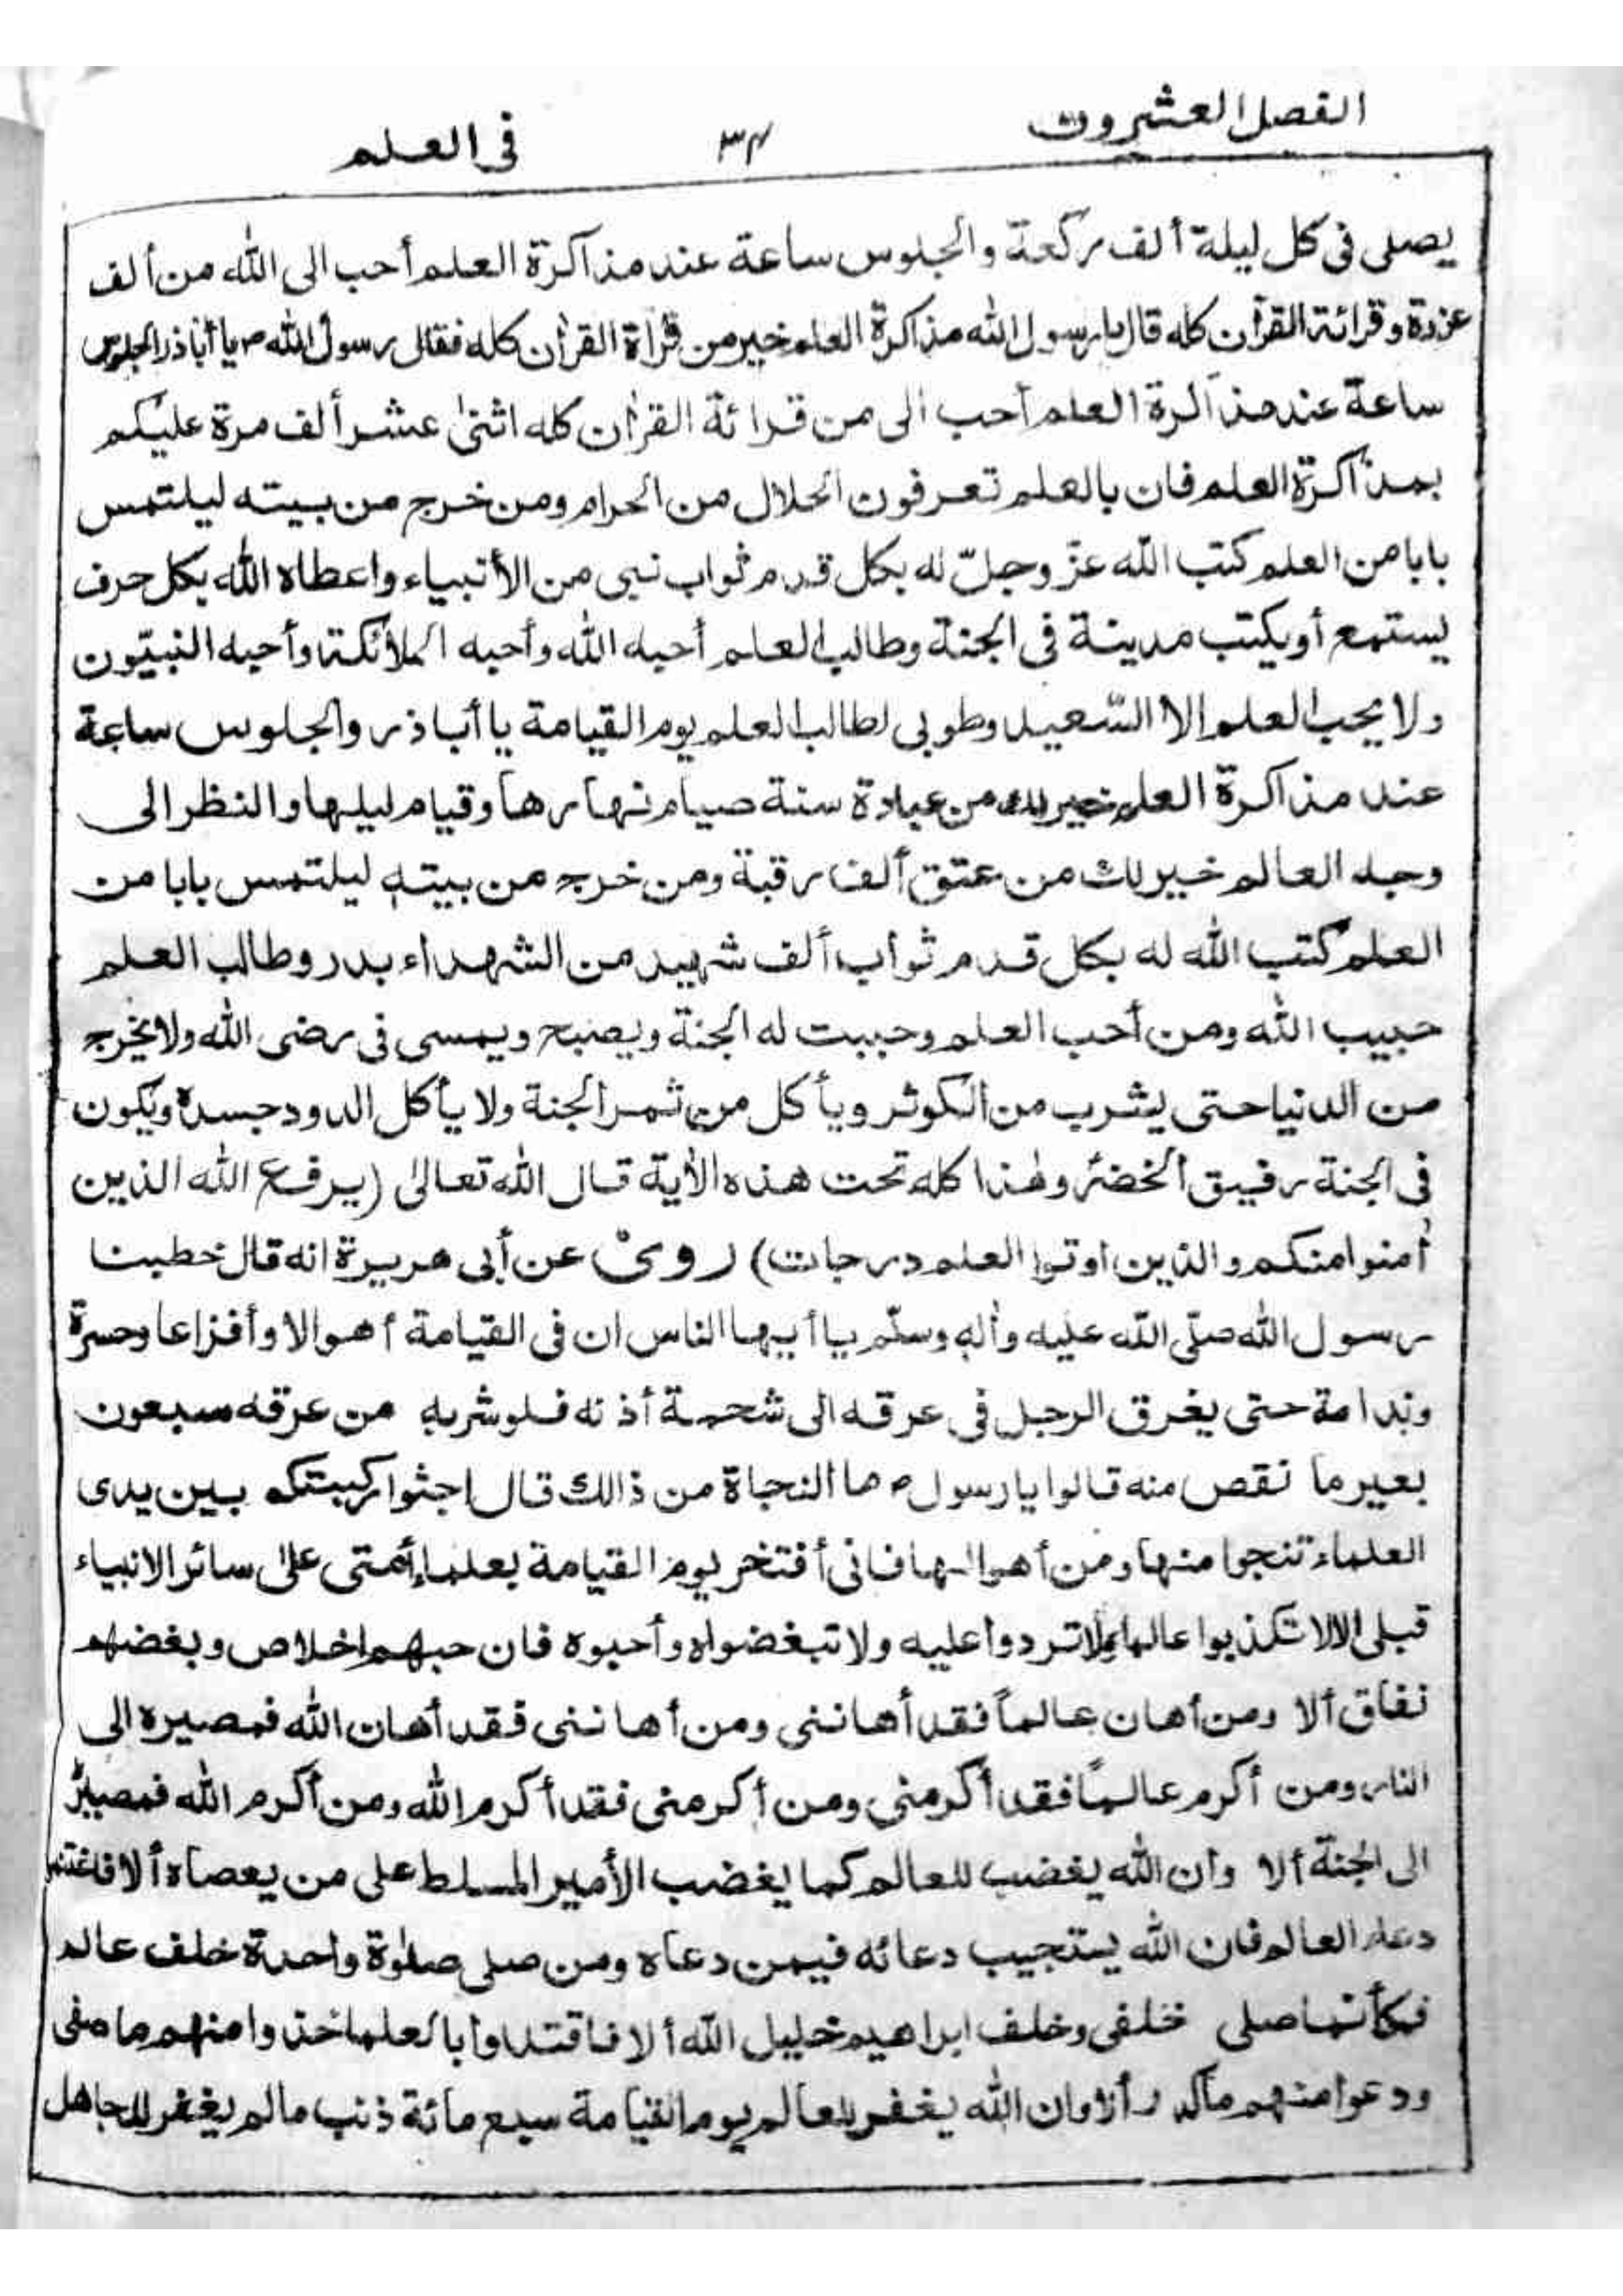 الفصل العشرون
٣٤
فى العلم
يصلى فى كل ليلة ألف ركعة والجلوس ساعة عند مذاكرة العلم أحب الى الله من ألف
عزدة وقرائة القرآن كله قال يارسول الله مذاكرة العلم خير من قرأة القرآن كله فقال رسول الله ص يا أباذر الجلوس
ساعة عند مذاكرة العلم أحب الى من قرائة القرآن كله اثنى عشر ألف مرة عليكم
بمذاكرة العلم فان بالعلم تعرفون الحلال من الحرام ومن خرج من بيته ليلتمس
بابا من العلم كتب الله عزّ وجلّ له بكل قدم ثواب نبى من الأنبياء واعطاه الله بكل حرف
يستمع أو يكتب مدينة فى الجنة وطالب العلم أحبه الله وأحبه الملائكة وأحبه النبيّون
ولا يحب العلم الا السّعيد وطوبى لطالب العلم يوم القيامة يا أباذر والجلوس ساعة
عند مذاكرة العلم خير لك من عبادة سنة صيام نهارها وقيام ليلها والنظر الى
وجه العالم خير لك من عتق ألف رقبة ومن خرج من بيته ليلتمس بابا من
العلم كتب الله له بكل قدم ثواب ألف شهيد من الشهداء بدر وطالب العلم
حبيب الله ومن أحب العلم وحببت له الجنة ويصبح ويمسى فى رضى الله ولا يخرج
من الدنيا حتى يشرب من الكوثر ويأكل من ثمر الجنة ولا يأكل الدود جسده ويكون
فى الجنة رفيق الخضر وهذا كله تحت هذه الأية قال الله تعالى (يرفع الله الذين
أمنوا منكم والذين اوتوا العلم درجات) روى عن أبى هريرة انه قال خطبنا
رسول الله صلّى الله عليه وأله وسلّم يا أيها الناس ان فى القيامة أهوالا وأفزاعا وحسرة
وندامة حتى يغرق الرجل فى عرقه الى شحمة أذنه فلو شربه من عرقه سبعون
بعير ما نقص منه قالوا يارسول ص ما النجاة من ذالك قال اجثوا ركبتكم بين يدى
العلماء تنجوا منها ومن أهوالها فانى أفتخر يوم القيامة بعلماء أمتى على سائر الانبياء
قبلى الا لا تكذبوا عالما ولا تردوا عليه ولا تبغضواه وأحبوه فان حبهم اخلاص وبغضهم
نفاق ألا ومن أهان عالماً فقد أهاننى ومن أهاننى فقد أهان الله فمصيره الى
النار ومن أكرم عالماً فقد أكرمنى ومن أكرمنى فقد أكرم الله ومن أكرم الله فمصيره
الى الجنة ألا وان الله يغضب للعالم كما يغضب الأمير المسلط على من يعصاه ألا فاغتنم
دعاء العالم فان الله يستجيب دعائه فيمن دعاه ومن صلى صلوة واحدة خلف عالم
فكأنما صلى خلفى وخلف ابراهيم خليل الله ألا فاقتدوا بالعلما خذوا منهم ما صفى
ودعوا منهم ماكدر ألا وان الله يغفر للعالم يوم القيامة سبع مائة ذنب مالم يغفر للجاهل